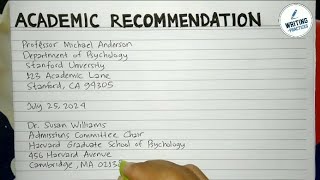 ACADEMIC RECOMMENDATION
WRITING
PRACTICES
Professor Michael Anderson
Department of Psychology
Stanford University
123 Academic Lane
Stanford, CA 94305
July 25, 2024
Dr. Susan Williams
Admissions Committee Chair
Harvard Graduate School of Psychology
456 Harvard Avenue
Cambridge, MA